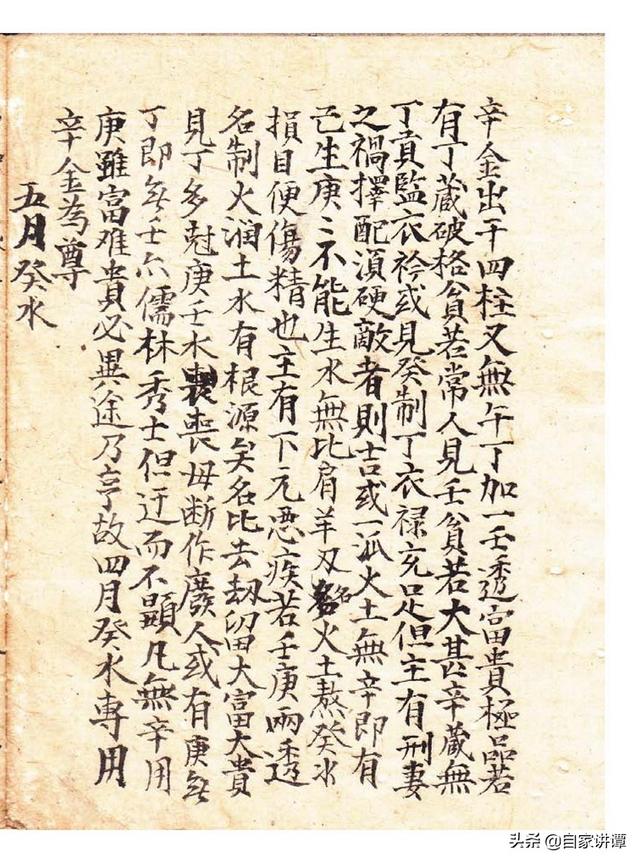 辛金出干四柱又無午丁加一壬透富貴極品若
有丁藏破格貧若常人見壬貧若大甚辛藏無
丁貢監衣衿或見癸制丁衣禄充足但主有刑妻
之禍擇配湏硬敵者則吉或一派火土無辛即有
己生庚〻不能生水無比肩羊刃名火土熬癸水
損目便傷精也主有下元悪疾若壬庚兩透
名制火润土水有根源矣名比去刼留大富大貴
見丁多尅庚壬水喪喪母断作廢人或有庚無
丁即無壬亦儒林秀士但迂而不顯凡無辛用
庚雖富难貴必異途乃亨故四月癸水專用
辛金為尊
五月癸水
头条 @自家讲谭